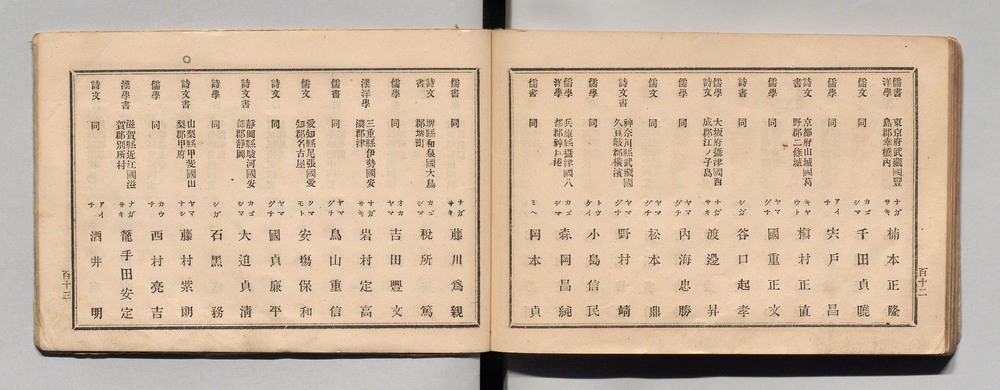 儒書洋學 東京府武藏國豐島郡幸橋內 ナガサキ 楠本正隆
詩文 同 カゴシマ 千田貞曉
儒學 同 アイチ 宍戶昌
詩文書 京都府山城國葛野郡二條城 ヤマグチ 槇村正直
儒文 同 ヤマグチ 國重正文
詩書 同 シガ 谷口起孝
詩文儒學 大坂府攝津國西成郡江ノ子島 ナガサキ 渡邊昇
儒學 同 ヤマグチ 內海忠勝
儒文 同 ヤマグチ 松本鼎
詩文書 神奈川縣武藏國久良岐郡橫濱 ヤマグチ 野村靖
儒學 同 トウケイ 小島信民
儒學洋學 兵庫縣攝津國八部郡神戶港 カゴシマ 森岡昌純
儒書 同 ミヘ 岡本貞
百十二
儒書 同 ナガサキ 藤川爲親
詩文和書 堺縣和泉國大鳥郡堺町 カゴシマ 稅所篤
儒學 同 オカヤマ 吉田豐文
漢洋學 三重縣伊勢國安濃郡津 ナガサキ 岩村定高
儒學 同 ヤマグチ 鳥山重信
儒文 愛知縣尾張國愛知郡名古屋 クマモト 安塲保和
詩文 同 ヤマグチ 國貞廉平
詩文書 靜岡縣駿河國安部郡靜岡 カゴシマ 大迫貞淸
詩學 同 シガ 石黑務
詩文書 山梨縣甲斐國山梨郡甲府 ヤマナシ 藤村紫朗
儒學 同 カウチ 西村亮吉
漢學書 滋賀縣近江國滋賀郡別所村 ナガサキ 籠手田安定
詩文 同 アイチ 酒井明
百十三